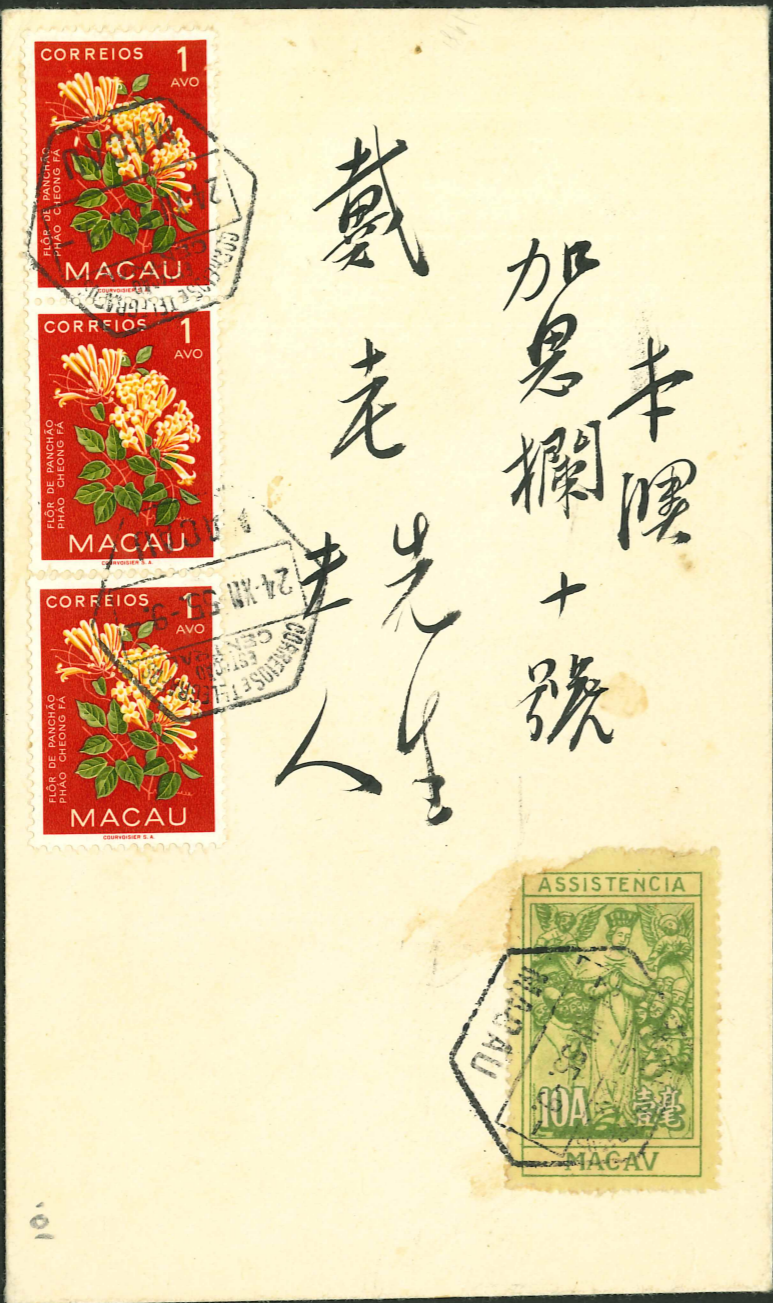 CORREIOS 1
AVO
FLÔR DE PANCHÃO
PHÁO CHEONG FÁ
MACAU
COURVOISIER S.A.
CORREIOS 1
AVO
FLÔR DE PANCHÃO
PHÁO CHEONG FÁ
MACAU
COURVOISIER S.A.
CORREIOS 1
AVO
FLÔR DE PANCHÃO
PHÁO CHEONG FÁ
MACAU
COURVOISIER S.A.
MACAU
CORREIOS E TELEGRAFOS
MACAU
24·XII 55·9
ESTAÇÃO
CENTRAL
CORREIOS E TELEGRAFOS
本澳
加思欄十號
戴老先生
夫人
ASSISTENCIA
10A 壹毫
MACAV
MACAU
101